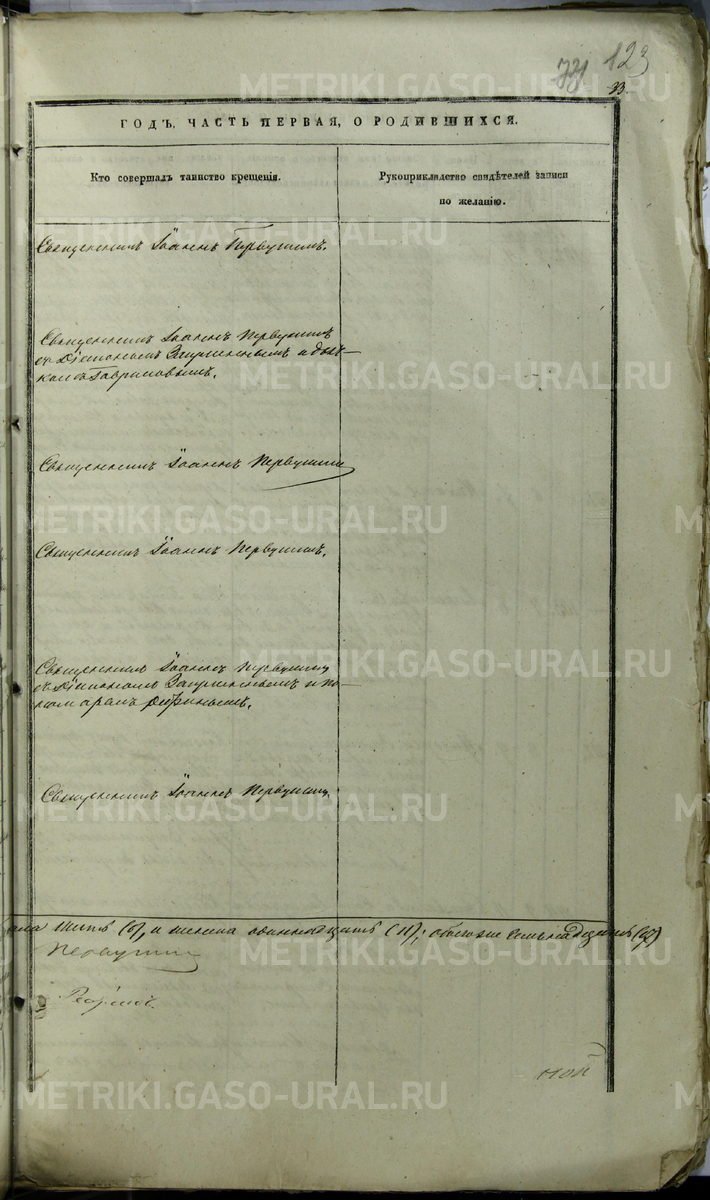 123
33.
ГОДЪ, ЧАСТЬ ПЕРВАЯ, О РОДИВШИХСЯ.
Кто совершалъ таинство крещенія.
Рукоприкладство свидѣтелей записи
по желанію.
Священникъ Іоаннъ Первушинъ.
Священникъ Іоаннъ Первушинъ
съ Діакономъ и дьяч-
комъ Гавриловымъ.
Священникъ Іоаннъ Первушинъ
Священникъ Іоаннъ Первушинъ.
Священникъ Іоаннъ Первушинъ
съ Діакономъ и по-
номаремъ
Священникъ Іоаннъ Первушинъ.
и женска одиннадцать (11); обоего же семнадцать (17)
Первушинъ
METRIKI.GASO-URAL.RU